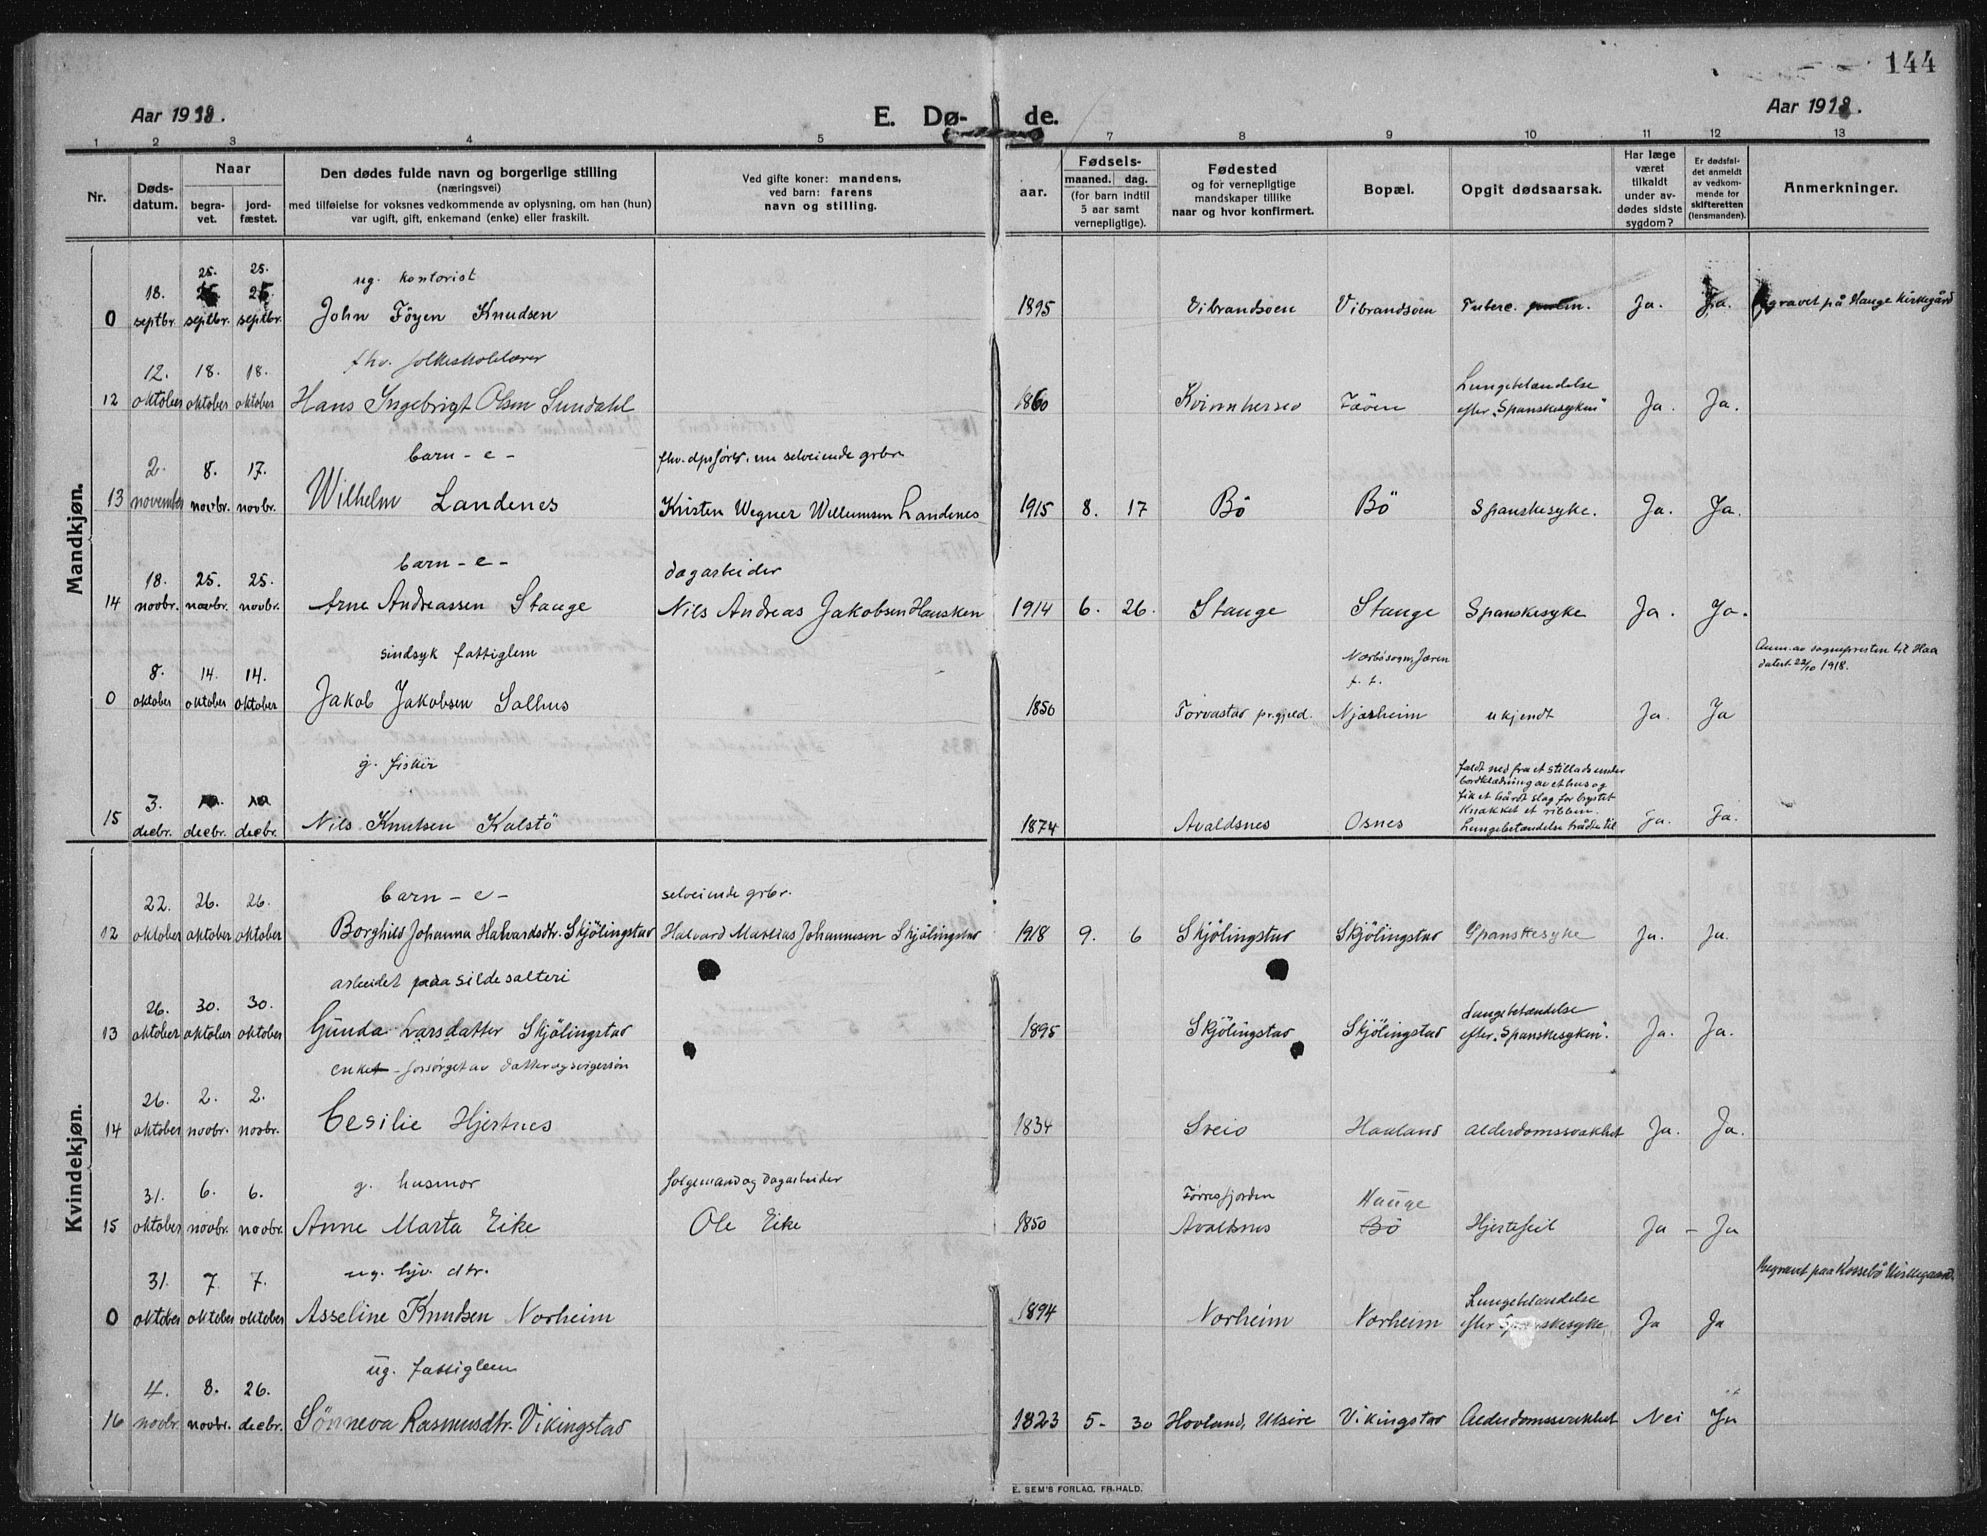 144
Aar 1918.
E. Dø-
de.
Aar 1918.
1 2 3 4 5 7 8 9 10 11 12 13
Nr.
Døds-
datum.
Naar
begra-
vet.
jord-
fæstet.
Den dødes fulde navn og borgerlige stilling
(næringsvei)
med tilføielse for voksnes vedkommende av oplysning, om han (hun)
var ugift, gift, enkemand (enke) eller fraskilt.
Ved gifte koner: mandens,
ved barn: farens
navn og stilling.
aar.
Fødsels-
maaned. dag.
(for barn indtil
5 aar samt
vernepligtige).
Fødested
og for vernepligtige
mandskaper tillike
naar og hvor konfirmert.
Bopæl.
Opgit dødsaarsak.
Har læge
været
tilkaldt
under av-
dødes sidste
sygdom?
Er dødsfal-
det anmeldt
av vedkom-
mende for
skifteretten
(lensmanden).
Anmerkninger.
Mandkjøn.
25. 25.
ug. kontorist
18.
0 septbr. septbr. septbr. John Föyen Knudsen 1895 Vibrandsöen Vibrandsöen Tuberc. Ja. Ja. Begravet på Hauge kirkegård
fhv. folkeskolelærer
12. 18. 18.
Lungebetændelse
12 oktober oktober oktober Hans Ingebrigt Olsen Sundahl 1860 Kvinnherred Fööen efter "Spanskesyken" Ja. Ja.
barn - e - fhv. dpsförer, nu selveiende grbr.
2. 8. 17.
13 november novbr. novbr. Wilhelm Landenes Kristen Wegner Willumsen Landenes 1915 8. 17 Bö Bö Spanskesyke. Ja. Ja.
barn - e - dagarbeider
18. 25. 25.
14 novbr. novbr. novbr. Arne Andreassen Stange Nils Andreas Jakobsen Hausken 1914 6. 26. Stange Stange Spanskesyke Ja. Ja.
sindsyk fattiglem Nærbö sogn, Jæren Anm. av sognepresten til Haa
8. 14. 14. f. t. datert 22/10 1918.
0 oktober oktober oktober Jakob Jakobsen Salhus 1850 Torvastad prgjeld. Njærheim ukjendt Ja. Ja
g. fisker
faldt ned fra et stillads under
bordklædning av et hus og
fik et hårdt slag for brystet
knækket et ribben.
3.
15 decbr. decbr. decbr. Nils Knutsen Kalstö 1874 Avaldsnes Osnes Lungebetændelse trådte til Ja. Ja.
Kvindekjøn.
barn - e - selveiende grbr.
22. 26. 26.
12 oktober oktober oktober Borghild Johanna Halvardsdtr. Skjölingstad Halvard Matias Johannesen Skjölingstad 1918 9. 6 Skjölingstad Skjölingstad Spanskesyke Ja. Ja.
arbeidet paa sildesalteri
26. 30. 30.
Lungebetændelse
13 oktober oktober oktober Gunda Larsdatter Skjölingstad 1895 Skjölingstad Skjölingstad efter "Spanskesyken". Ja. Ja.
enke - forsörget av datter og svigersön
26. 2. 2.
14 oktober novbr. novbr. Cesilie Hjertnes 1834 Sveio Haaland Alderdomssvakhet Ja. Ja.
g. husmor folgemand og dagarbeider
31. 6. 6. Förresfjorden Hauge
15 oktober novbr. novbr. Anne Marta Eike Ole Eike 1850 Avaldsnes Bö Hjertefeil Ja - Ja
ug. hjv. dtr. Begravet paa Kossebö Kirkegaard.
31. 7. 7.
Lungebetændelse
0 oktober oktober oktober Asseline Knudsen Norheim 1894 Norheim Norheim efter Spanskesyke Ja Ja
ug. fattiglem
4. 8. 26.
16 novbr novbr. decbr. Sönneva Rasmusdtr. Vikingstad 1823 5- 30 Hovland, Utsire Vikingstad Alderdomssvakhet Nei Ja
E. SEM'S FORLAG, FR.HALD.